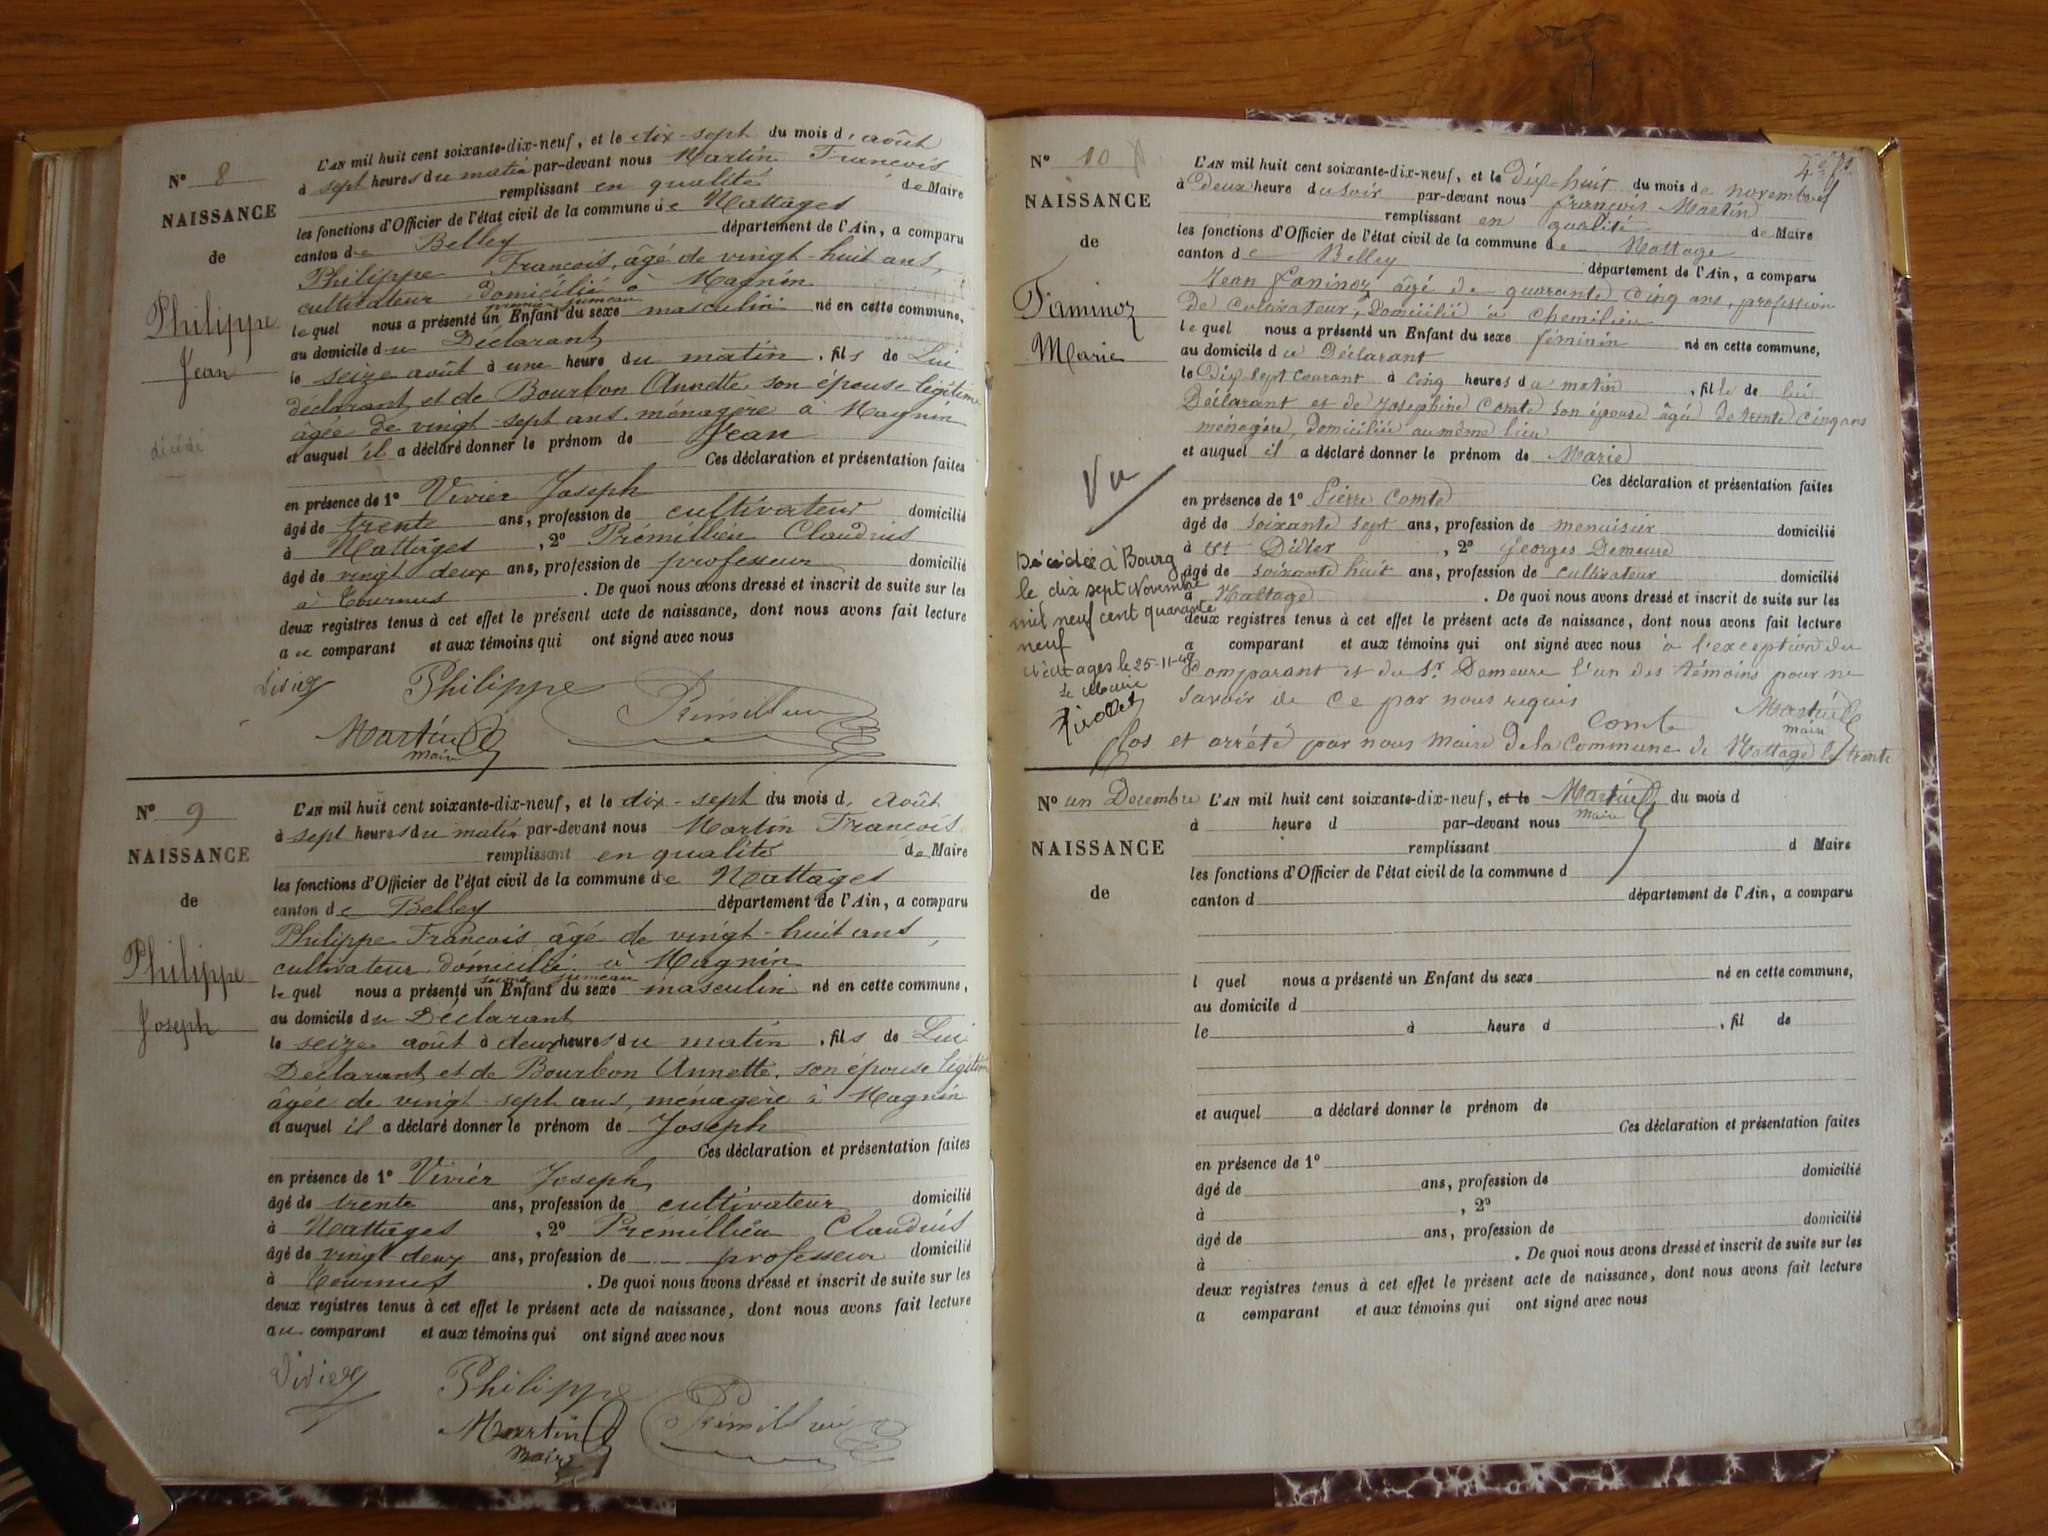 N° 8
NAISSANCE
de
Philippe
Jean
décédé
L'AN mil huit cent soixante-dix-neuf, et le dix-sept du mois d'août
à sept heures du matin par-devant nous Martin François
remplissant en qualité de Maire
les fonctions d'Officier de l'état civil de la commune de Nattages
canton de Belley département de l'Ain, a comparu
Philippe François, âgé de vingt-huit ans,
cultivateur domicilié à Magnin
premier jumeau
lequel nous a présenté un Enfant du sexe masculin né en cette commune,
au domicile du Déclarant
le seize août à une heure du matin, fils de Lui
déclarant et de Bourbon Annette, son épouse légitime
âgée de vingt-sept ans, ménagère à Magnin
et auquel il a déclaré donner le prénom de Jean
Ces déclaration et présentation faites
en présence de 1° Vivier Joseph
âgé de trente ans, profession de cultivateur domicilié
à Nattages, 2° Prémillieu Claudius
âgé de vingt deux ans, profession de professeur domicilié
à Tournus. De quoi nous avons dressé et inscrit de suite sur les
deux registres tenus à cet effet le présent acte de naissance, dont nous avons fait lecture
au comparant et aux témoins qui ont signé avec nous
Vivier Philippe Prémillieu
Martin
maire
N° 9
NAISSANCE
de
Philippe
Joseph
L'AN mil huit cent soixante-dix-neuf, et le dix-sept du mois d'Août
à sept heures du matin par-devant nous Martin François
remplissant en qualité de Maire
les fonctions d'Officier de l'état civil de la commune de Nattages
canton de Belley département de l'Ain, a comparu
Philippe François âgé de vingt-huit ans,
cultivateur domicilié à Magnin
jumeau
lequel nous a présenté un Enfant du sexe masculin né en cette commune,
au domicile du Déclarant
le seize août à deux heures du matin, fils de Lui
Déclarant et de Bourbon Annette, son épouse légitime
âgée de vingt-sept ans, ménagère à Magnin
et auquel il a déclaré donner le prénom de Joseph
Ces déclaration et présentation faites
en présence de 1° Vivier Joseph
âgé de trente ans, profession de cultivateur domicilié
à Nattages, 2° Prémillieu Claudius
âgé de vingt deux ans, profession de professeur domicilié
à Tournus. De quoi nous avons dressé et inscrit de suite sur les
deux registres tenus à cet effet le présent acte de naissance, dont nous avons fait lecture
au comparant et aux témoins qui ont signé avec nous
Vivier Philippe
Martin Prémillieu
Maire
N° 10
NAISSANCE
de
Faminoz
Marie
Vu
Décédée à Bourg
le dix sept Novembre
mil neuf cent quarante
neuf
Nattages le 25-11-49
Le Maire
L'AN mil huit cent soixante-dix-neuf, et le Dix-huit du mois de novembre
à Deux heure du soir par-devant nous françois Martin
remplissant en qualité de Maire
les fonctions d'Officier de l'état civil de la commune de Nattage
canton de Belley département de l'Ain, a comparu
Jean Faninoz âgé de quarante cinq ans, profession
de cultivateur, Domicilié à Chemilieu
lequel nous a présenté un Enfant du sexe féminin né en cette commune,
au domicile du Déclarant
le Dix sept courant à cinq heures du matin, fille de lui
Déclarant et de Joséphine Comte son épouse âgée de trente cinq ans
ménagère, domiciliée au même lieu
et auquel il a déclaré donner le prénom de Marie
Ces déclaration et présentation faites
en présence de 1° Pierre Comte
âgé de soixante sept ans, profession de menuisier domicilié
à St Didier, 2° Georges Demeure
âgé de soixante huit ans, profession de cultivateur domicilié
à Nattage. De quoi nous avons dressé et inscrit de suite sur les
deux registres tenus à cet effet le présent acte de naissance, dont nous avons fait lecture
a comparant et aux témoins qui ont signé avec nous à l'exception du
Comparant et du Sr Demeure l'un des témoins pour ne
savoir de ce par nous requis
Comte Martin
maire
Clos et arrêté par nous Maire de la Commune de Nattage le trente
N° un Decembre L'AN mil huit cent soixante-dix-neuf, et le Martin du mois d
Maire
à heure d par-devant nous
NAISSANCE
remplissant d Maire
les fonctions d'Officier de l'état civil de la commune d
de
canton d département de l'Ain, a comparu
l quel nous a présenté un Enfant du sexe né en cette commune,
au domicile d
le à heure d , fil de
et auquel a déclaré donner le prénom de
Ces déclaration et présentation faites
en présence de 1°
âgé de ans, profession de domicilié
à , 2°
âgé de ans, profession de domicilié
à . De quoi nous avons dressé et inscrit de suite sur les
deux registres tenus à cet effet le présent acte de naissance, dont nous avons fait lecture
a comparant et aux témoins qui ont signé avec nous